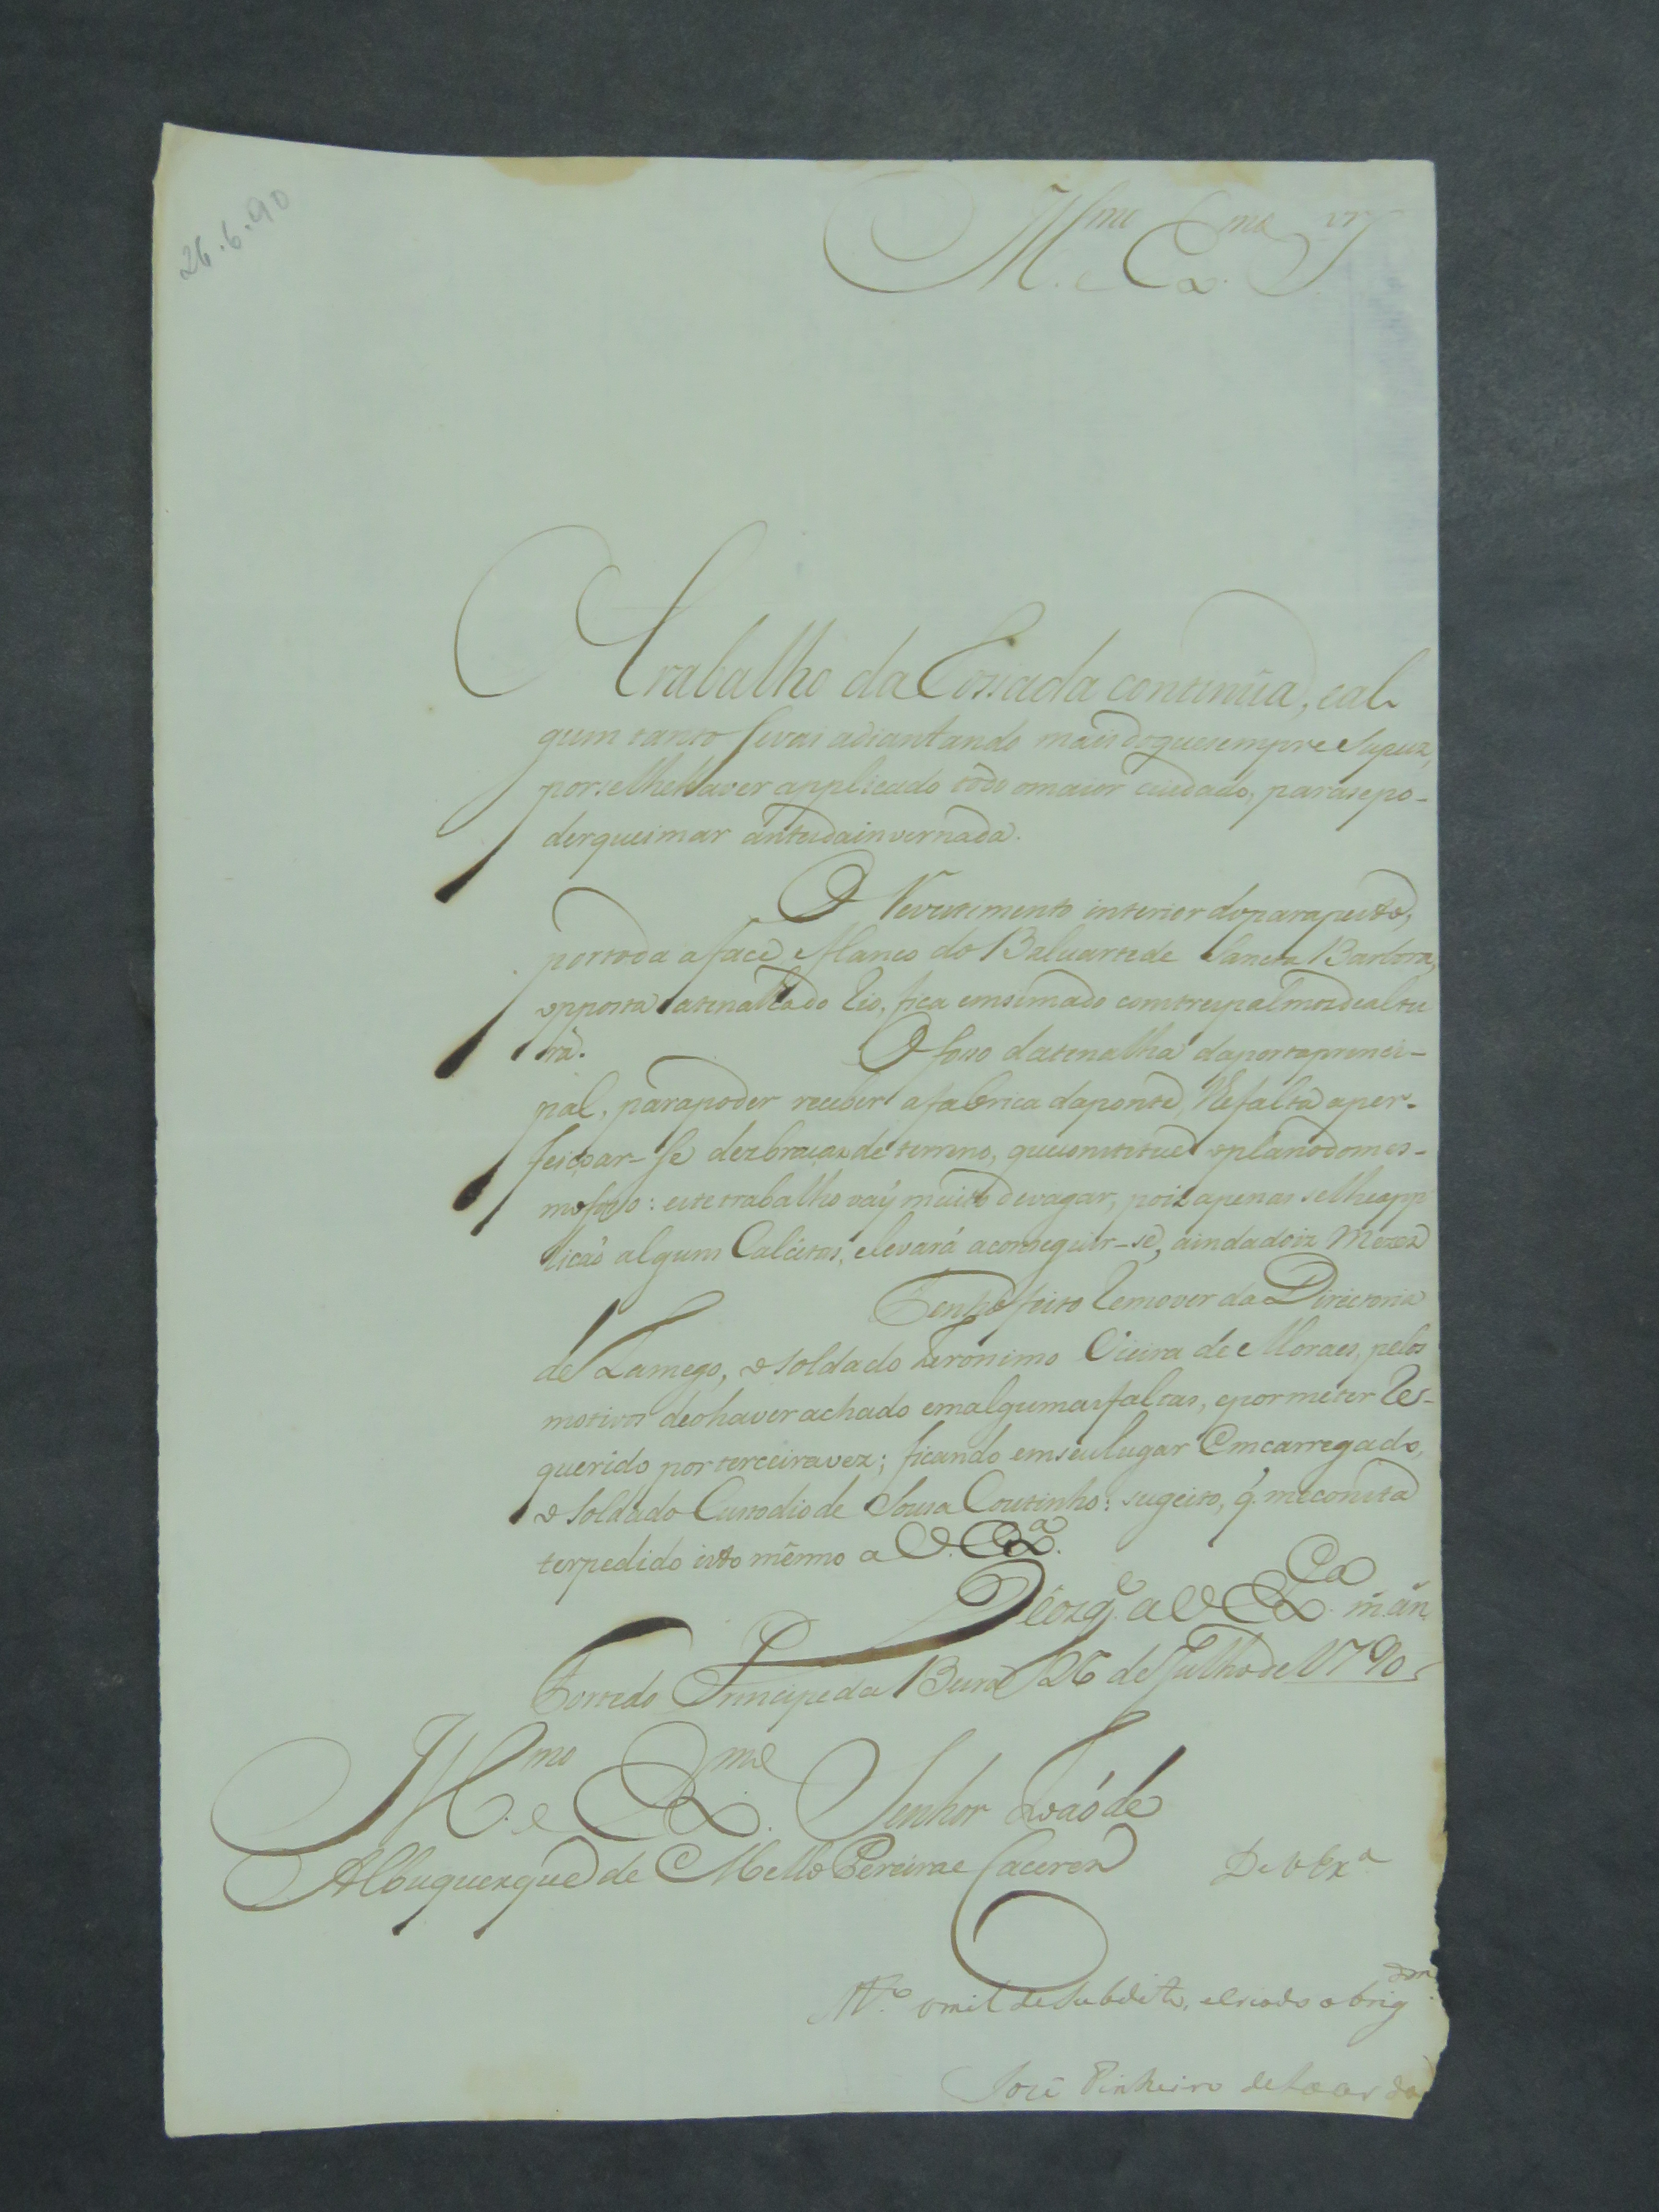 26.6.90
Ill.mo e Ex.mo Sr.
O trabalho da Rossada continúa, e al-
gum tanto se vai adiantando mais do que sempre supuz,
por se lhe haver applicado todo o maior cuidado, para se po-
der queimar antes da invernada.
O Revestimento interior do parapeito,
por toda a face, e flanco do Baluarte de Sancta Barbora,
opposta a tenalha do Rio, fica emsimado com tres palmos de altu
ra. O fosso da tenalha da porta princi-
pal, para poder receber a fabrica da ponte, lhe falta a per-
feiçoar-se dez braças de terreno, que constitue o plano do mes-
mo fosso: este trabalho vay muito devagar, pois apenas se lhe app
licão alguns Calcetas, e levará a conseguir-se, ainda dois Mezes
Tenho feito Remover da Directoria
de Lamego, o soldado Jeronimo Vieira de Moraes, pelos
motivos de o haver achado em algumas faltas, e por me ter Re-
querido por terceira vez; ficando em seu lugar Emcarregado,
o soldado Custodio de Sousa Coutinho: sugeito, q. me consta
ter pedido isto mesmo a V. Ex.a
Deos g.e a V. Ex.a m. an.
Forte do Principe da Beira 26 de Julho de 1790
Ill.mo e Ex.mo Senhor João de
Albuquerque de Mello Pereira e Caceres
De V Ex.a
M.to omilde Subdito, e criado obrig.dm
José Pinheiro de Lacerda